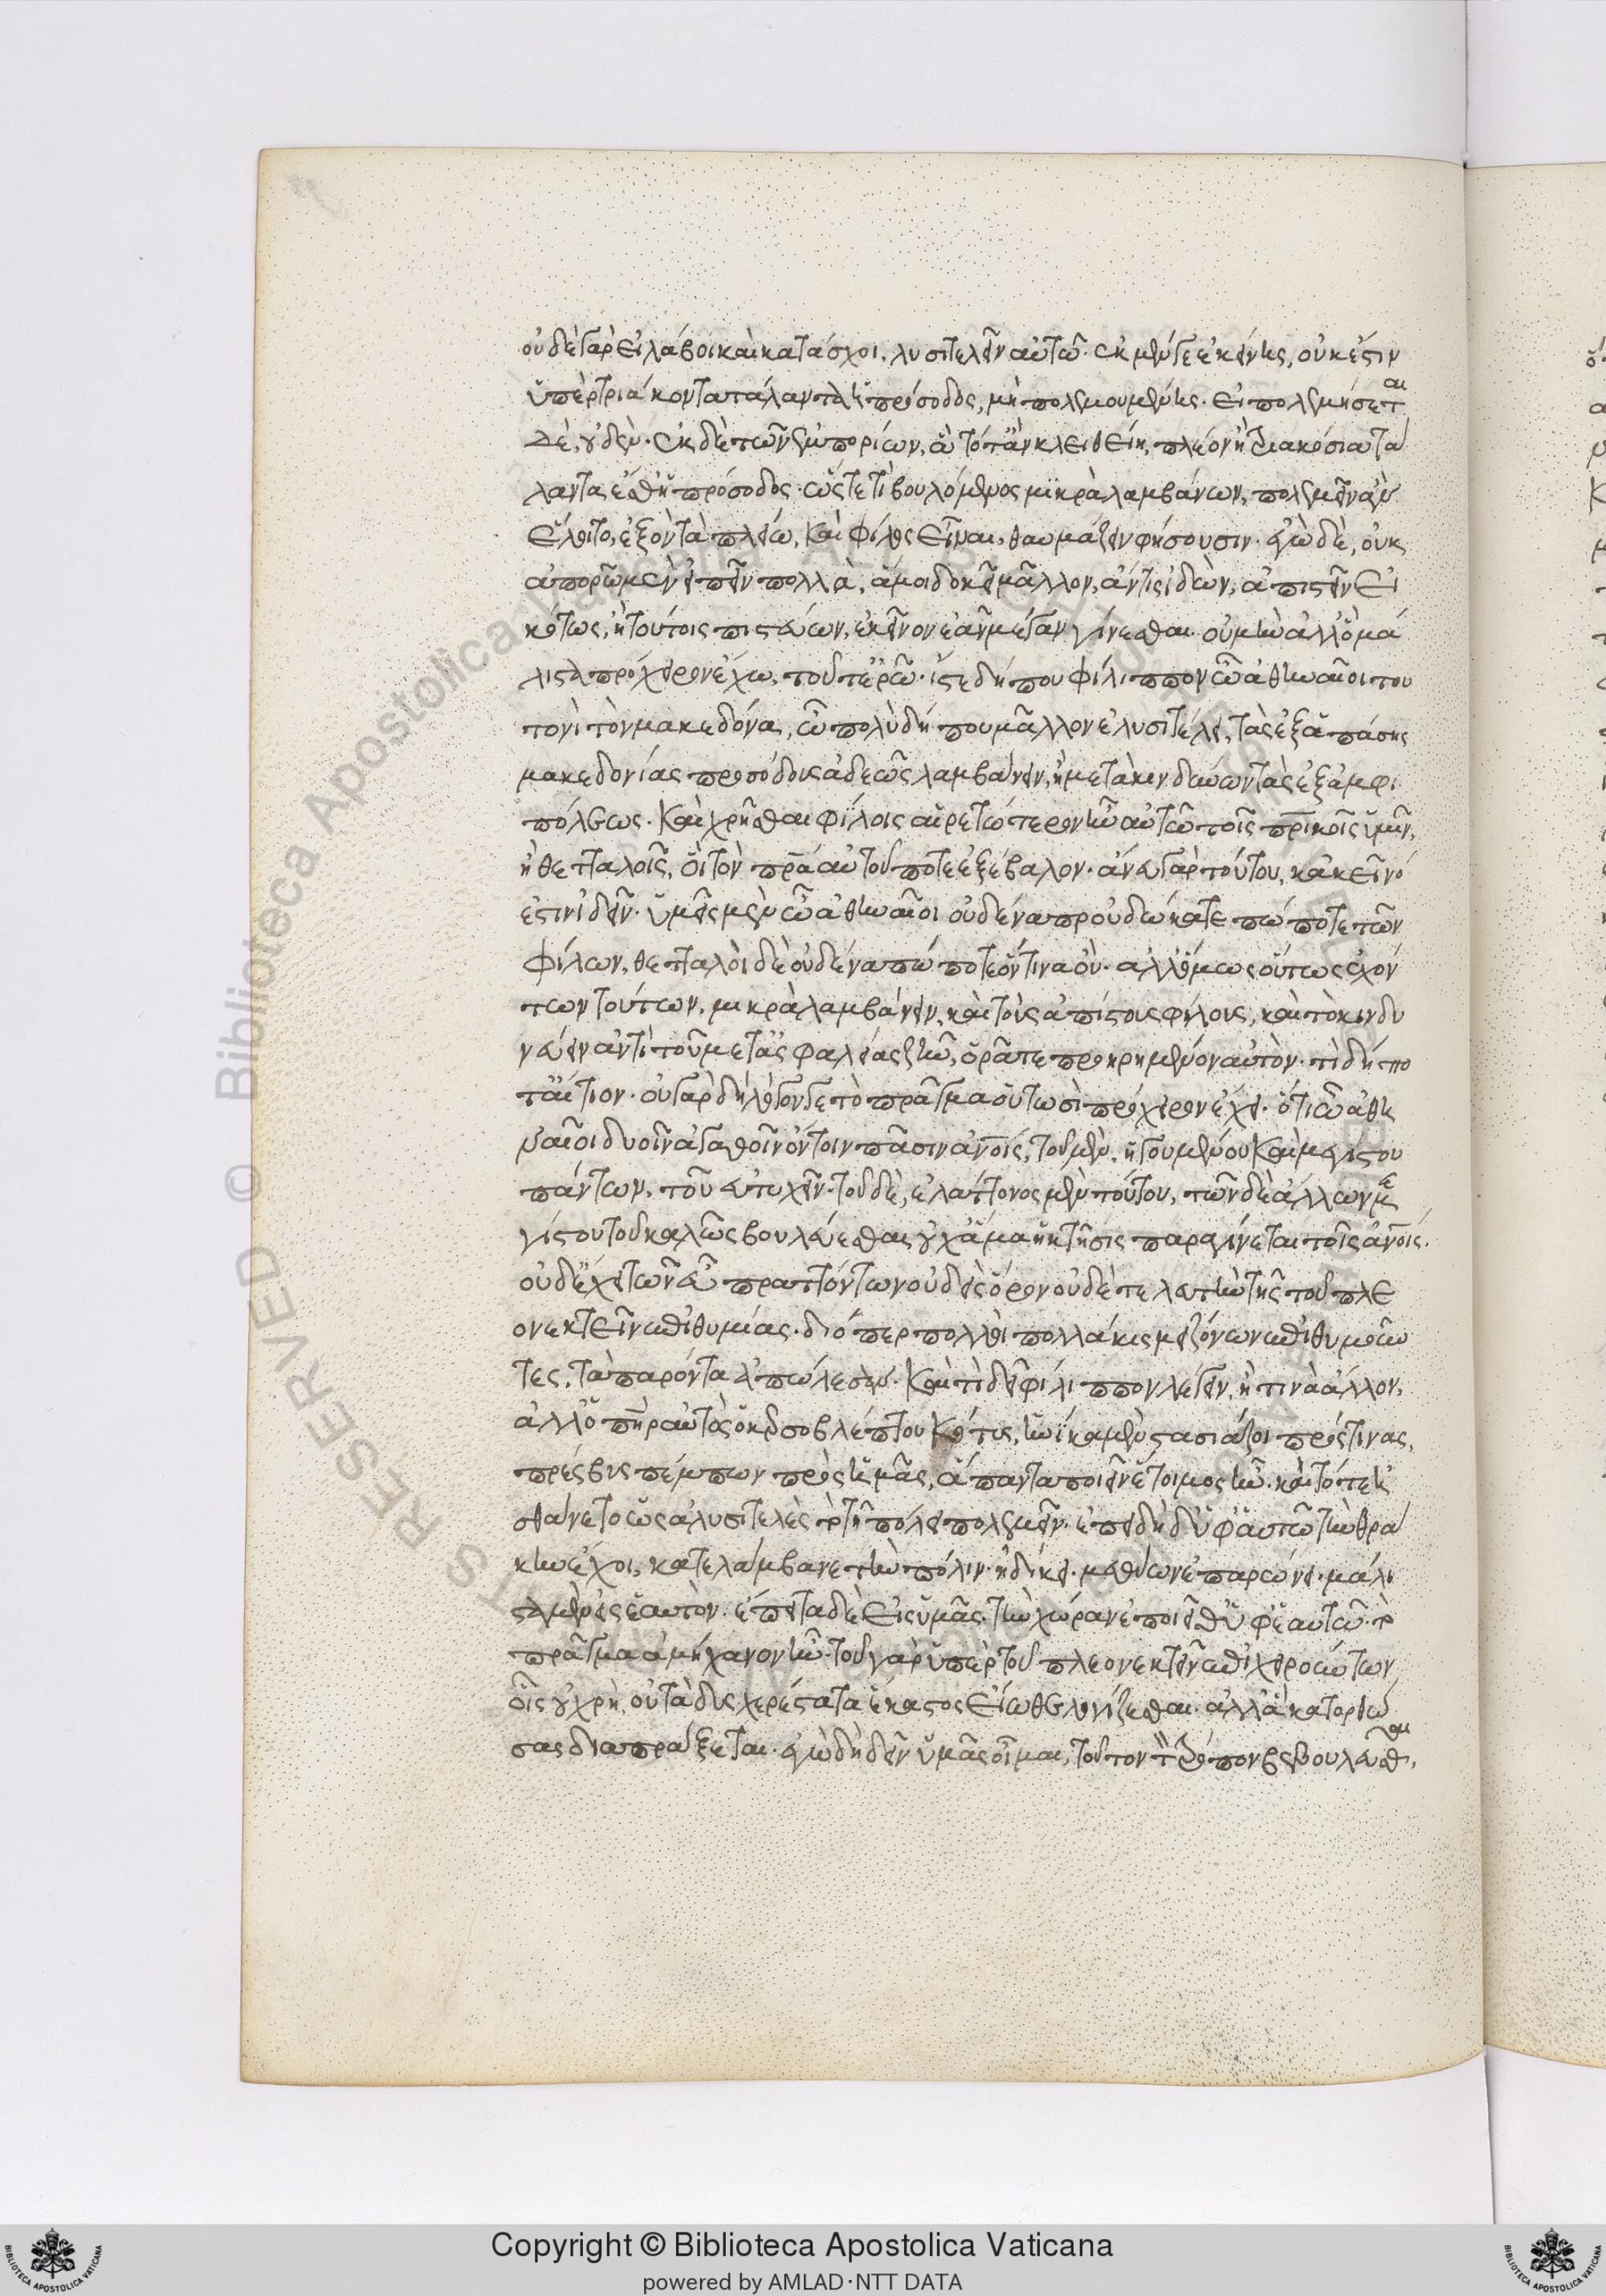 οὐδὲ γὰρ εἰ λάβοι καὶ κατάσχοι, λυσιτελεῖν αὐτῶ. ἐκ μέν γε ἐκείνης, οὐκ ἔστιν
ὑπὲρ τριάκοντα τάλαντα ἡ πρόσοδος, μὴ πολεμουμένης. εἰ πολεμήσεται
δὲ, οὐδέν. ἐκ δὲ τῶν ἐμπορίων, ἃ τότ' ἂν κλεισθείη, πλέον ἢ διακόσια τά
λαντα ἐσθ' ἡ πρόσοδος. ὥστε τί βουλόμενος μικρὰ λαμβάνων, πολεμεῖν ἂν
εἵλοιτο, ἐξὸν τὰ πλείω, καὶ φίλος εἶναι, θαυμάζειν φήσουσιν. ἐγὼ δὲ, οὐκ
ἀπορῶ μὲν εἰπεῖν πολλὰ, ἅ μοι δοκεῖ μᾶλλον, ἄν τις ἰδὼν, ἀπιστεῖν εἰ
κότως, ἢ τούτοις πιστεύων, ἐκεῖνον ἐᾶν μέγαν γίνεσθαι. οὐ μὴν ἀλλ' ὃ μά
λιστα πρόχειρον ἔχω, τοῦτ' ἐρῶ. ἴστε δήπου φίλιππον ὦ ἀθηναῖοι του
τονὶ τὸν μακεδόνα, ὧ πολὺ δήπου μᾶλλον ἐλυσιτέλει, τὰς ἐξ ἁπάσης
μακεδονίας προσόδους ἀδεῶς λαμβάνειν, ἢ μετὰ κινδύνων τὰς ἐξ ἀμφι
πόλεως. καὶ χρῆσθαι φίλοις αἱρετώτερον ἦν αὐτῶ τοῖς πρικοῖς ὑμῖν,
ἢ θετταλοῖς, οἳ τὸν πρα αὐτοῦ ποτε ἐξέβαλον. ἄνευ γὰρ τούτου, κἀκεῖνό
ἐστιν ἰδεῖν. ὑμεῖς μὲν ὦ ἀθηναῖοι οὐδένα προὐδώκατε πώποτε τῶν
φίλων, θετταλοὶ δὲ οὐδένα πώποτε ὅντινα οὔ. ἀλλ' ὅμως οὕτως ἐχόν
των τούτων, μικρὰ λαμβάνειν, καὶ τοὺς ἀπίστους φίλους, καὶ τὸ κινδυ
νεύειν ἀντὶ τοῦ μετ' ἀσφαλείας ζῆν, ὁρᾶτε προηρημένον αὐτὸν. τί δή πο
τ' αἴτιον. οὐ γὰρ δὴ λόγον γε τὸ πρᾶγμα οὑτωσὶ πρόχειρον ἔχει. ὅτι ὦ ἀθη
ναῖοι δυοῖν ἀγαθοῖν ὄντοιν πᾶσιν ἀνοις, τοῦ μὲν, ἡγουμένου καὶ μεγίστου
πάντων, τοῦ εὐτυχεῖν. τοῦ δὲ, ἐλάττονος μὲν τούτου, τῶν δὲ ἄλλων με
γίστου τοῦ καλῶς βουλεύεσθαι, οὐχ ἅμα ἡ κτῆσις παραγίνεται τοῖς ἀνοις.
οὐδ' ἔχει τῶν εὖ πραττόντων οὐδεὶς ὅρον οὐδὲ τελευτὴν τῆς τοῦ πλε
ονεκτεῖν ἐπιθυμίας. διόπερ πολλοὶ πολλάκις μειζόνων ἐπιθυμοῦν
τες, τὰ παρόντα ἀπώλεσαν. καὶ τί δεῖ φίλιππον λέγειν, ἢ τινὰ ἄλλον,
ἀλλ' ὁ πηρ αὐτὸς ὁ κερσοβλέπτου κότυς, ἡνίκα μὲν στασιάζοι πρός τινας,
πρέσβεις πέμπων πρὸς ὑμᾶς, ἅπαντα ποιεῖν ἕτοιμος ἦν. καὶ τότε ἠ
σθάνετο ὡς ἀλυσιτελὲς τὸ τῆ πόλει πολεμεῖν. ἐπειδὴ δ' ὑφ' αὑτῶ τὴν θρά
κην ἔχοι, κατελάμβανε τὴν πόλιν. ἠδίκει. μεθύων ἐπαρώνει. μάλι
στα μὲν εἰς ἑαυτὸν. ἔπειτα δὲ εἰς ὑμᾶς. τὴν χώραν ἐποιεῖθ' ὑφ' ἑαυτῶ. τὸ
πρᾶγμα ἀμήχανον ἦν. τοῦ γὰρ ὑπὲρ τοῦ πλεονεκτεῖν ἐπιχειρούντων
οἷς οὐ χρὴ, οὐ τὰ δυσχερέστατα ἕκαστος εἴωθε λογίζεσθαι. ἀλλ' ἃ κατορθώ
σας διαπράξεται. ἐγὼ δὴ δεῖν ὑμᾶς οἶμαι, τοῦτον τὸν τρόπον βεβουλεῦσθαι,
Copyright © Biblioteca Apostolica Vaticana
powered by AMLAD·NTT DATA